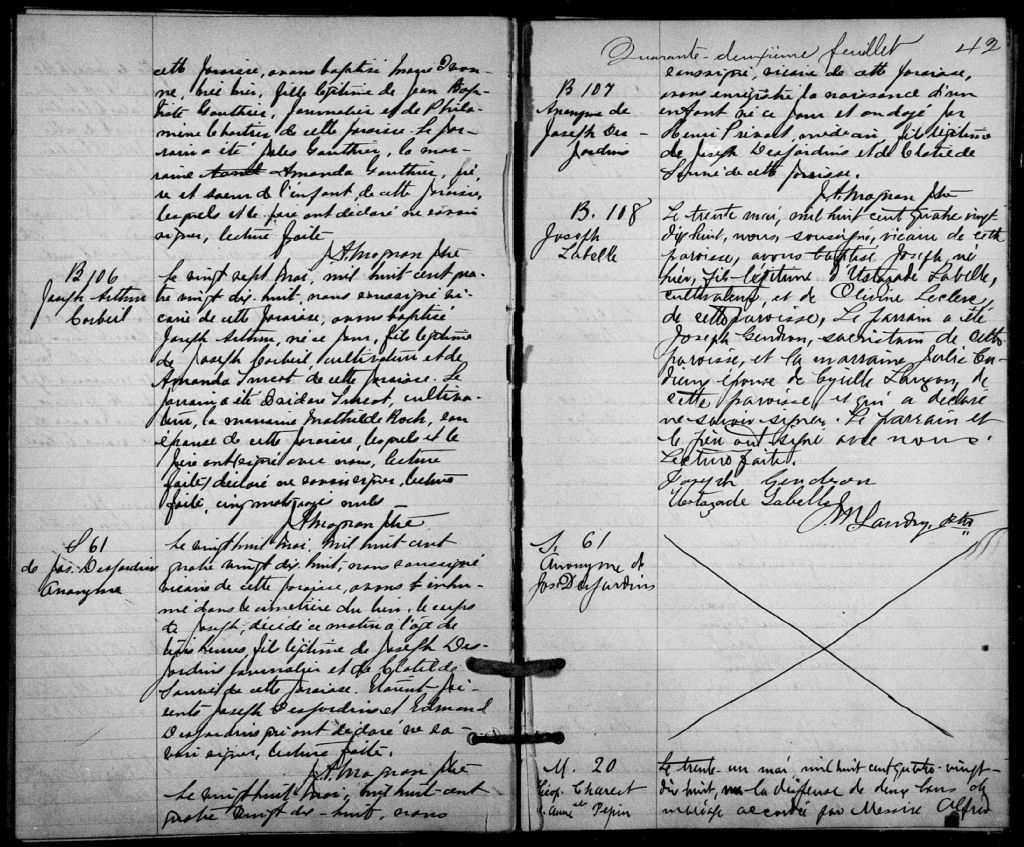 cette paroisse, avons baptisé Marie Ivon-
ne, née hier, fille légitime de Jean Bap-
tiste Gauthier, journalier et de Philo-
mène Chartier de cette paroisse. Le par-
rain a été Jules Gauthier, la mar-
raine Amanda Gauthier, frè-
re et soeur de l'enfant, de cette paroisse,
lesquels et le père ont déclaré ne savoir
signer, lecture faite
J A Magnan ptre
B 106
Joseph Arthur
Corbeil
Le vingt sept mai, mil huit cent qua-
tre vingt dix-huit, nous soussigné vi-
caire de cette paroisse, avons baptisé
Joseph Arthur, né ce jour, fils légitime
de Joseph Corbeil cultivateur et de
Amanda Simcot de cette paroisse. Le
parrain a été Simcot, cultiva-
teur, la marraine Mathilde Roch, son
épouse de cette paroisse, lesquels et le
père ont signé avec nous, lecture
faite/ déclaré ne savoir signer, lecture
faite, cinq mots nuls
J A Magnan ptre
S 61
de Jos. Desjardins
Anonyme
Le vingt huit mai, mil huit cent
quatre vingt dix-huit, nous soussigné
vicaire de cette paroisse, avons inhu-
mé dans le cimetière du lieu, le corps
de Joseph, décédé ce matin à l'âge de
trois heures, fils légitime de Joseph Des-
jardins journalier et de Clotilde
de cette paroisse. Etaient pré-
sents Joseph Desjardins et Edmond
Desjardins qui ont déclaré ne sa-
voir signer, lecture faite.
J A Magnan ptre
Le vingt huit mai, mil huit-cent
quatre vingt dix-huit, nous
Quarante-deuxième feuillet 42
B 107
Anonyme de
Joseph Des-
jardins
soussigné, vicaire de cette paroisse,
avons enregistré la naissance d'un
enfant né ce jour et ondoyé par
Henri médecin, fils légitime
de Joseph Desjardins et de Clotilde
de cette paroisse.
J A Magnan ptre
B. 108
Joseph
Labelle
Le trente mai, mil huit cent quatre vingt
dix huit, nous, soussigné, vicaire de cette
paroisse, avons baptisé Joseph né
hier, fils légitime d'Ustazade Labelle,
cultivateur et de Olivine Leclerc,
de cette paroisse, Le parrain a été
Joseph Gendron, sacristain de cette
paroisse, et la marraine, Julie Ca-
dieux épouse de Cyrille Lauzon, de
cette paroisse et qui a déclaré
ne savoir signer. Le parrain et
le père ont signé avec nous.
Lecture faite.
Joseph Gendron
Ustazade Labelle
Landry, ptre
S. 61
Anonyme de
Jos. Desjardins
M. 20
Géop. Charest
et
Pepin
Le trente-un mai mil huit cent quatre-vingt-
dix huit, vu la dispense de deux bans de
mariage accordée par Messire Alfred